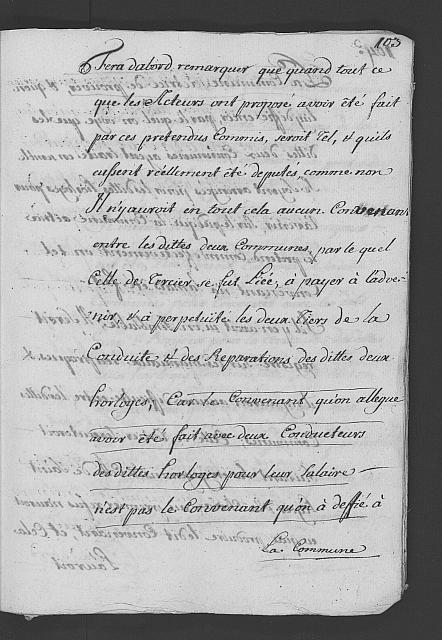 103
Fera d'abord remarquer que quand tout ce
que les Acteurs ont propose avoir été fait
par ces pretendus Commis, seroit Tel, & quils
eussent réellement été deputes, comme non
Il n'y auroit en tout cela aucun Convenant
entre les dittes deux Communes, par le quel
Celle de Tercier se fut Liée, a payer à l'adve-
nir, & à perpetuité les deux Tiers de la
Conduite, & des Reparations des dittes deux
horloges, Car le Convenant qu'on allegue
avoir été fait avec deux Conducteurs
des dittes horloges pour leur Salaire
n'est pas le Convenant qu'on à deffié à
La Commune